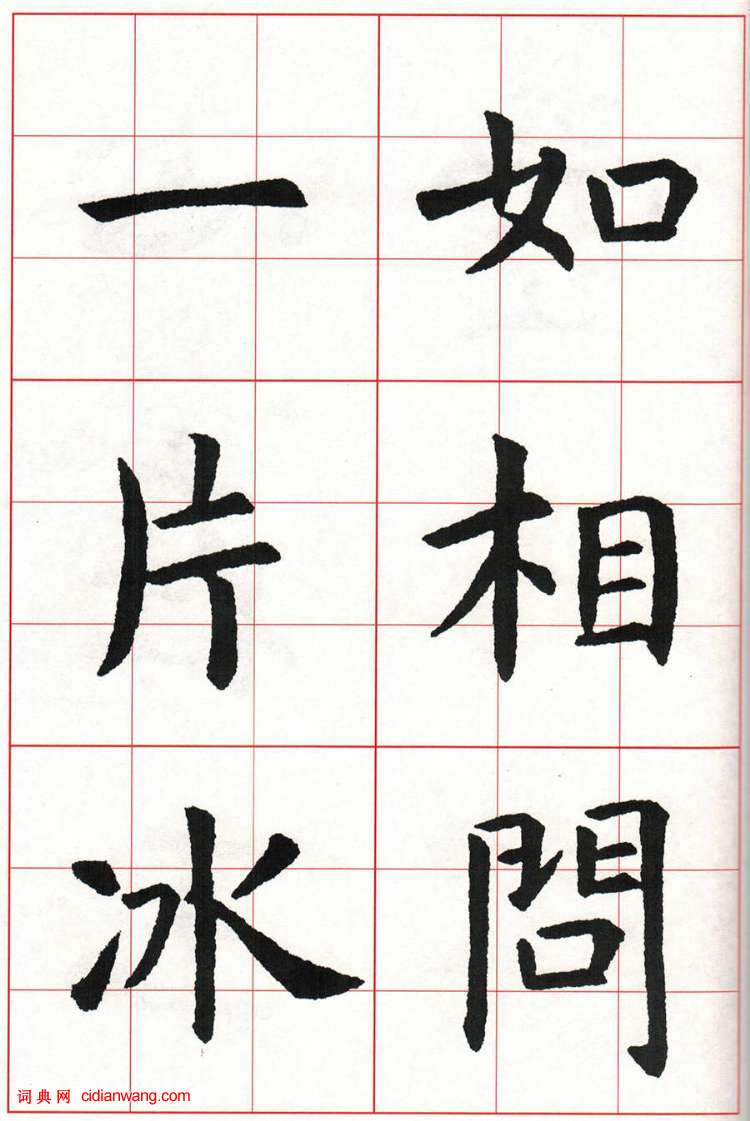 如相問
一片冰
词典网 cidianwang.com